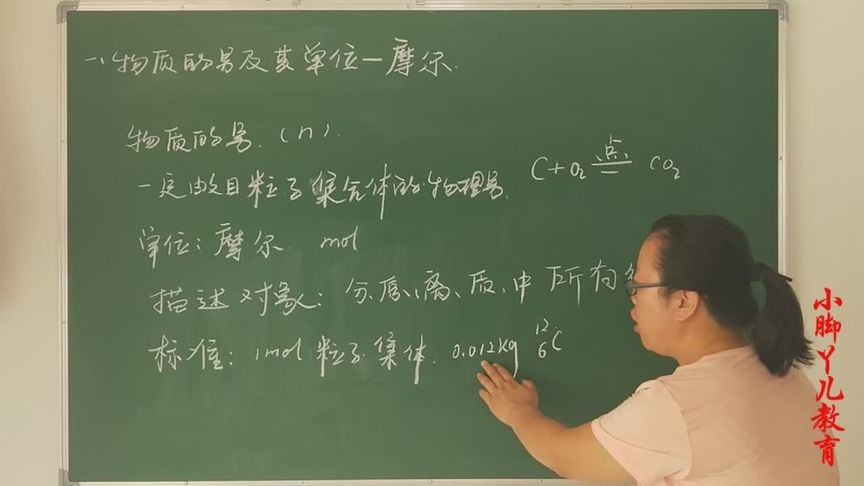 一、物质的量及其单位—摩尔.
物质的量.(n).
一定数目粒子集合体的物理量.
C+O₂ 点 CO₂
单位:摩尔 mol
描述对象:分、原、离、质、中 所有
标准:1mol 粒子集体. 0.012kg ¹²₆C
小脚丫儿教育